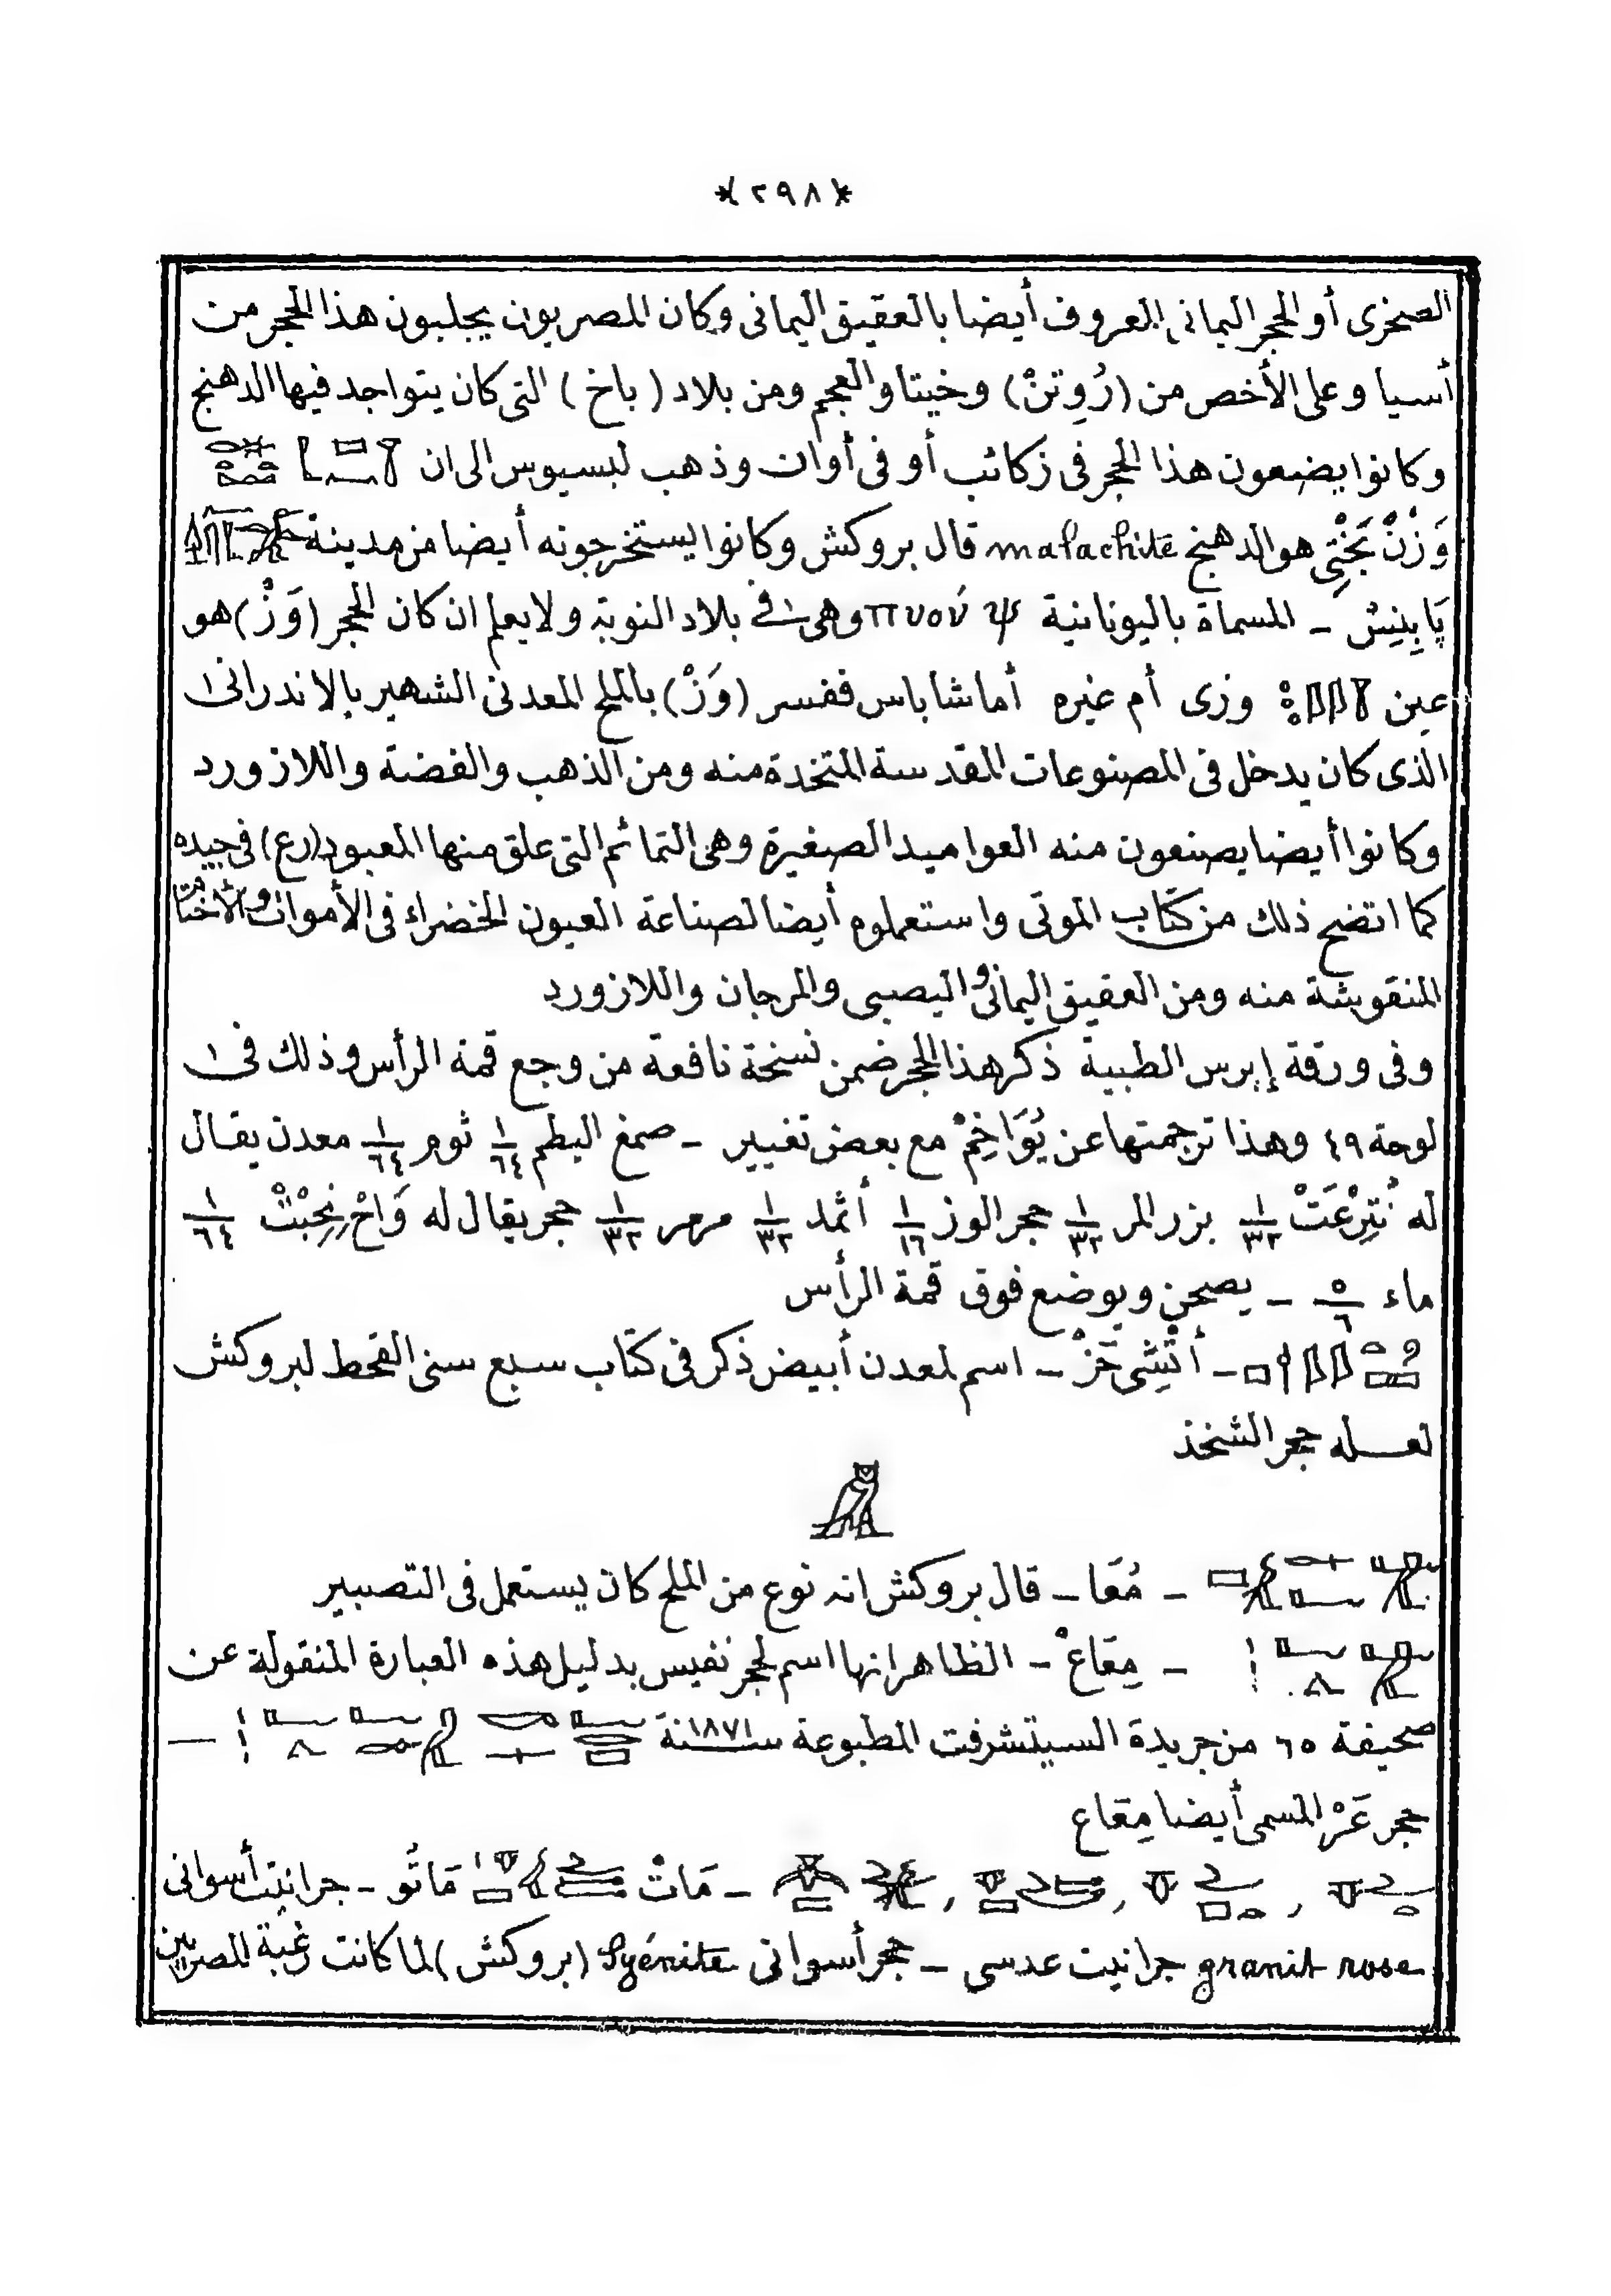 *(٢٩٨)*
الصخرى أو الحجر اليمانى المعروف أيضا بالعقيق اليمانى وكان المصريون يجلبون هذا الحجر من
أسيا وعلى الأخص من (رُوِتنْ) وخيتا والعجم ومن بلاد (باخ) التى كان يتواجد فيها الدهنج
وكانوا يضعون هذا الحجر فى زكائب أو فى أوان وذهب لبسيوس الى ان
هو الدهنج malachite قال بروكش وكانوا يستخرجونه أيضا من مدينة
المسماة باليونانية وهى فى بلاد النوبة ولا يعلم ان كان الحجر (وَزْ) هو
عين وزى أم غيره أما شاباس ففسر (وَزْ) بالملح المعدنى الشهير بالاندرانى
الذى كان يدخل فى المصنوعات المقدسة المتخذة منه ومن الذهب والفضة واللازورد
وكانوا أيضا يصنعون منه العواميد الصغيرة وهى التمائم التى علق منها المعبود (رع) فى جيده
كما اتضح ذلك من كتاب الموتى واستعملوه أيضا لصناعة العيون الخضراء فى الأموات
المنقوشة منه ومن العقيق اليمانى واليصبى والمرجان واللازورد
وفى ورقة إبرس الطبية ذكر هذا الحجر ضمن نسخة نافعة من وجع قمة الرأس وذلك فى
لوحة ٤٩ وهذا ترجمتها عن يُوَاخِمْ مع بعض تغيير - صمغ البطم ١/٦٤ ثوم ١/٦٤ معدن يقال
له نُتِرْعَتْ ١/٣٢ بزر المر ١/٣٢ حجر الوز ١/١٦ أثمد ١/٣٢ مرمر ١/٣٢ حجر يقال له ١/٦٤
ماء ٥/٦ - يصحن ويوضع فوق قمة الرأس
- اسم لمعدن أبيض ذكر فى كتاب سبع سنى القحط لبروكش
لعله حجر الشخذ
- مُعَا - قال بروكش انه نوع من الملح كان يستعمل فى التصبير
- مِعَاعْ - الظاهر انها اسم لحجر نفيس بدليل هذه العبارة المنقولة عن
صحيفة ٦٥ من جريدة السيتشرفت المطبوعة سنة ١٨٧١ -
حجر عَرْ المسمى أيضا مِعَاع
- مَاتْ مَاتُو - جرانيت أسوانى
granit rose جرانيت عدسى - حجر أسوانى Syénite (بروكش) لما كانت رغبة المصريين